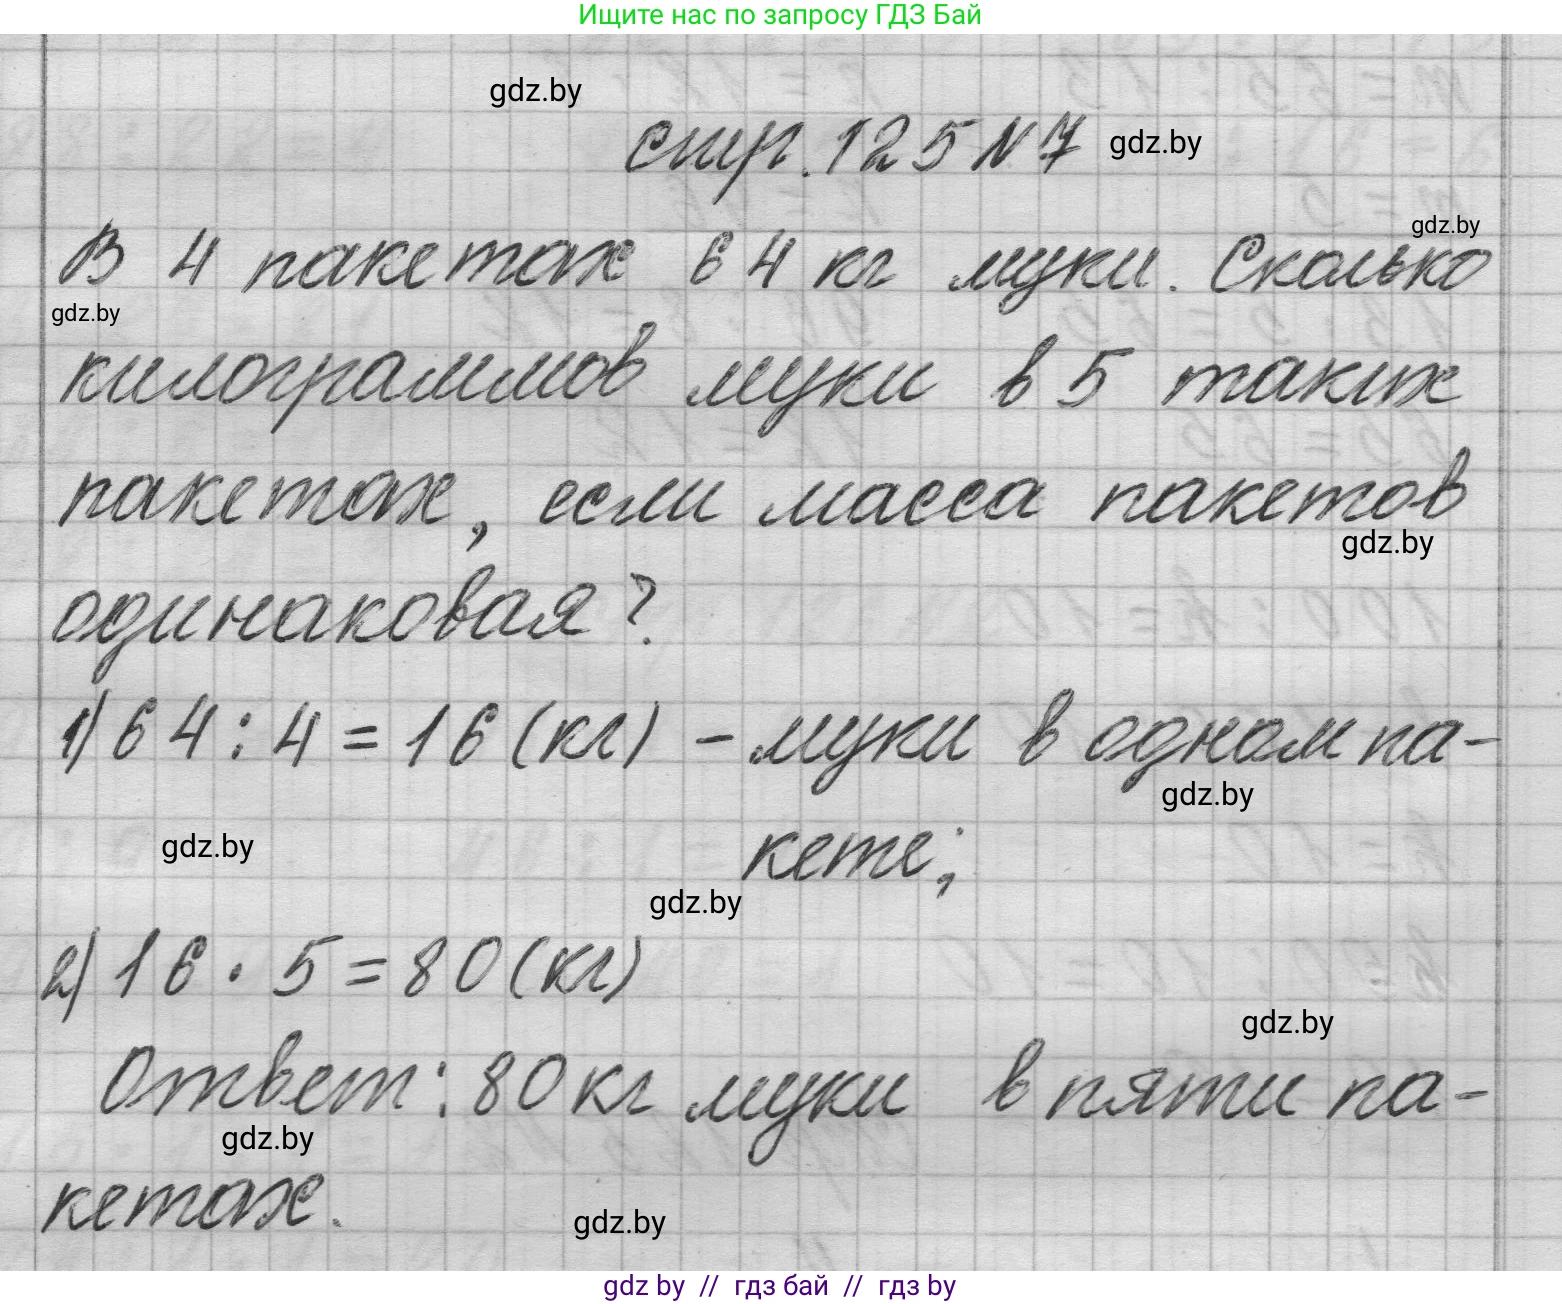 Ищите нас по запросу ГДЗ Бай
gdz.by
стр. 125 N 7 gdz.by
gdz.by
В 4 пакетах 64 кг муки. Сколько
gdz.by
килограммов муки в 5 таких
пакетах, если масса пакетов
gdz.by
одинаковая?
1) 64 : 4 = 16 (кг) - муки в одном па-
gdz.by
gdz.by
кете;
gdz.by
2) 16 · 5 = 80 (кг)
gdz.by
Ответ: 80 кг муки в пяти па-
gdz.by
кетах.
gdz.by
gdz by // гдз бай // гдз by